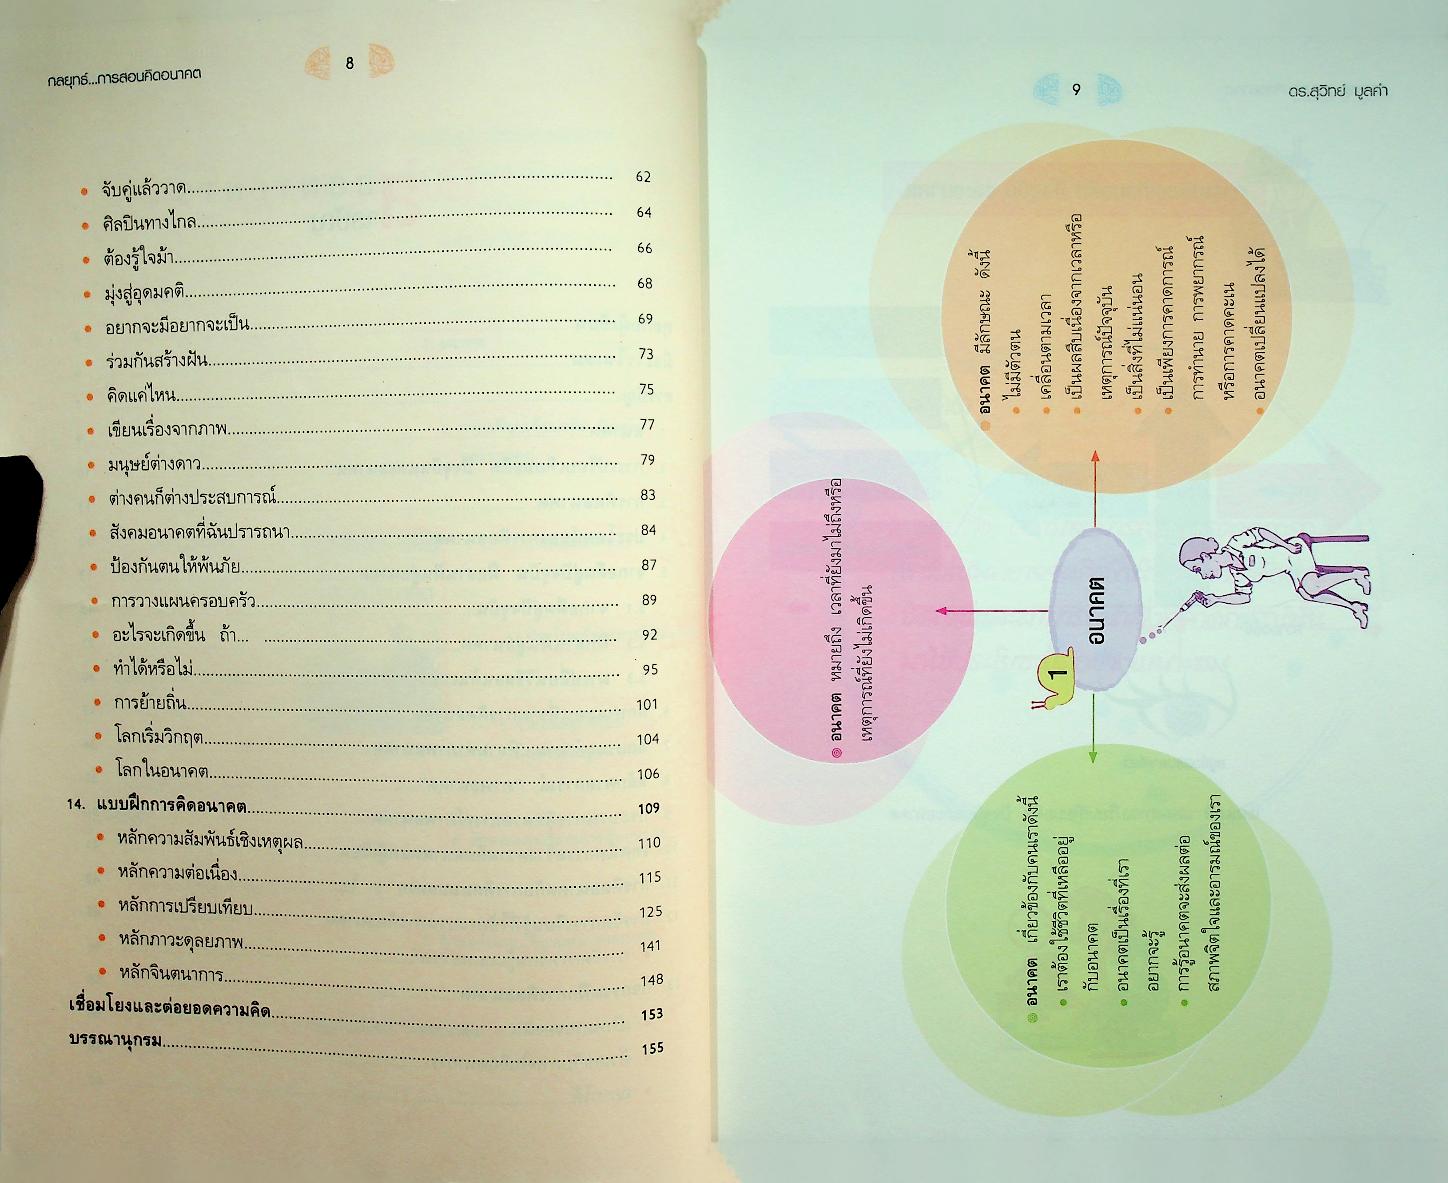 กลยุทธ์...การสอนคิดอนาคต
8
จับคู่แล้ววาด 62
ศิลปินทางไกล 64
ต้องรู้ใจม้า 66
มุ่งสู่อุดมคติ 68
อยากจะมีอยากจะเป็น 69
ร่วมกันสร้างฝัน 73
คิดแค่ไหน 75
เขียนเรื่องจากภาพ 77
มนุษย์ต่างดาว 79
ต่างคนก็ต่างประสบการณ์ 83
สังคมอนาคตที่ฉันปรารถนา 84
ป้องกันตนให้พ้นภัย 87
การวางแผนครอบครัว 89
อะไรจะเกิดขึ้น ถ้า... 92
ทำได้หรือไม่ 95
การย้ายถิ่น 101
โลกเริ่มวิกฤต 104
โลกในอนาคต 106
14. แบบฝึกการคิดอนาคต 109
หลักความสัมพันธ์เชิงเหตุผล 110
หลักความต่อเนื่อง 115
หลักการเปรียบเทียบ 125
หลักภาวะดุลยภาพ 141
หลักจินตนาการ 148
เชื่อมโยงและต่อยอดความคิด 153
บรรณานุกรม 155
9
ดร.สุวิทย์ มูลคำ
อนาคต หมายถึง เวลาที่ยังมาไม่ถึงหรือ
เหตุการณ์ที่ยังไม่เกิดขึ้น
1
อนาคต
อนาคต เกี่ยวข้องกับคนเราดังนี้
เราต้องใช้ชีวิตที่เหลืออยู่
กับอนาคต
อนาคตเป็นเรื่องที่เรา
อยากจะรู้
การรู้อนาคตจะส่งผลต่อ
สภาพจิตใจและอารมณ์ของเรา
อนาคต มีลักษณะ ดังนี้
ไม่มีตัวตน
เคลื่อนตามเวลา
เป็นผลสืบเนื่องจากเวลาหรือ
เหตุการณ์ปัจจุบัน
เป็นสิ่งที่ไม่แน่นอน
เป็นเพียงการคาดการณ์
การทำนาย การพยากรณ์
หรือการคาดคะเน
อนาคตเปลี่ยนแปลงได้